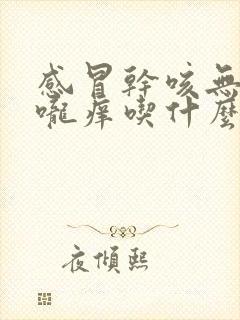 感冒幹咳無
嚨痒喫什麼
夜傾熙